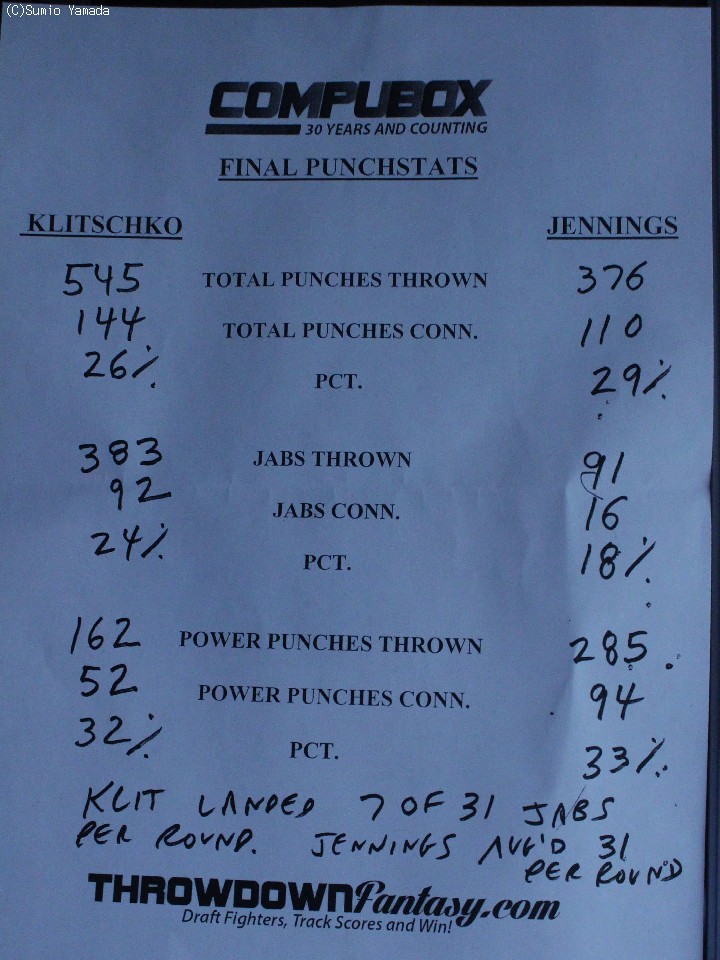 (C)Sumio Yamada
COMPUBOX
30 YEARS AND COUNTING
FINAL PUNCHSTATS
KLITSCHKO JENNINGS
545 TOTAL PUNCHES THROWN 376
144 TOTAL PUNCHES CONN. 110
26% PCT. 29%
383 JABS THROWN 91
92 JABS CONN. 16
24% PCT. 18%
162 POWER PUNCHES THROWN 285
52 POWER PUNCHES CONN. 94
32% PCT. 33%
KLIT LANDED 7 OF 31 JABS
PER ROUND. JENNINGS AVG'D 31
PER ROUND
THROWDOWNFantasy.com
Draft Fighters, Track Scores and Win!